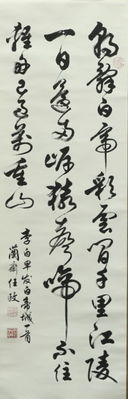 朝辭白帝彩雲間千里江陵
一日還兩岸猿聲啼不住
輕舟已過萬重山
李白早发白帝城一首
蘭齋任政